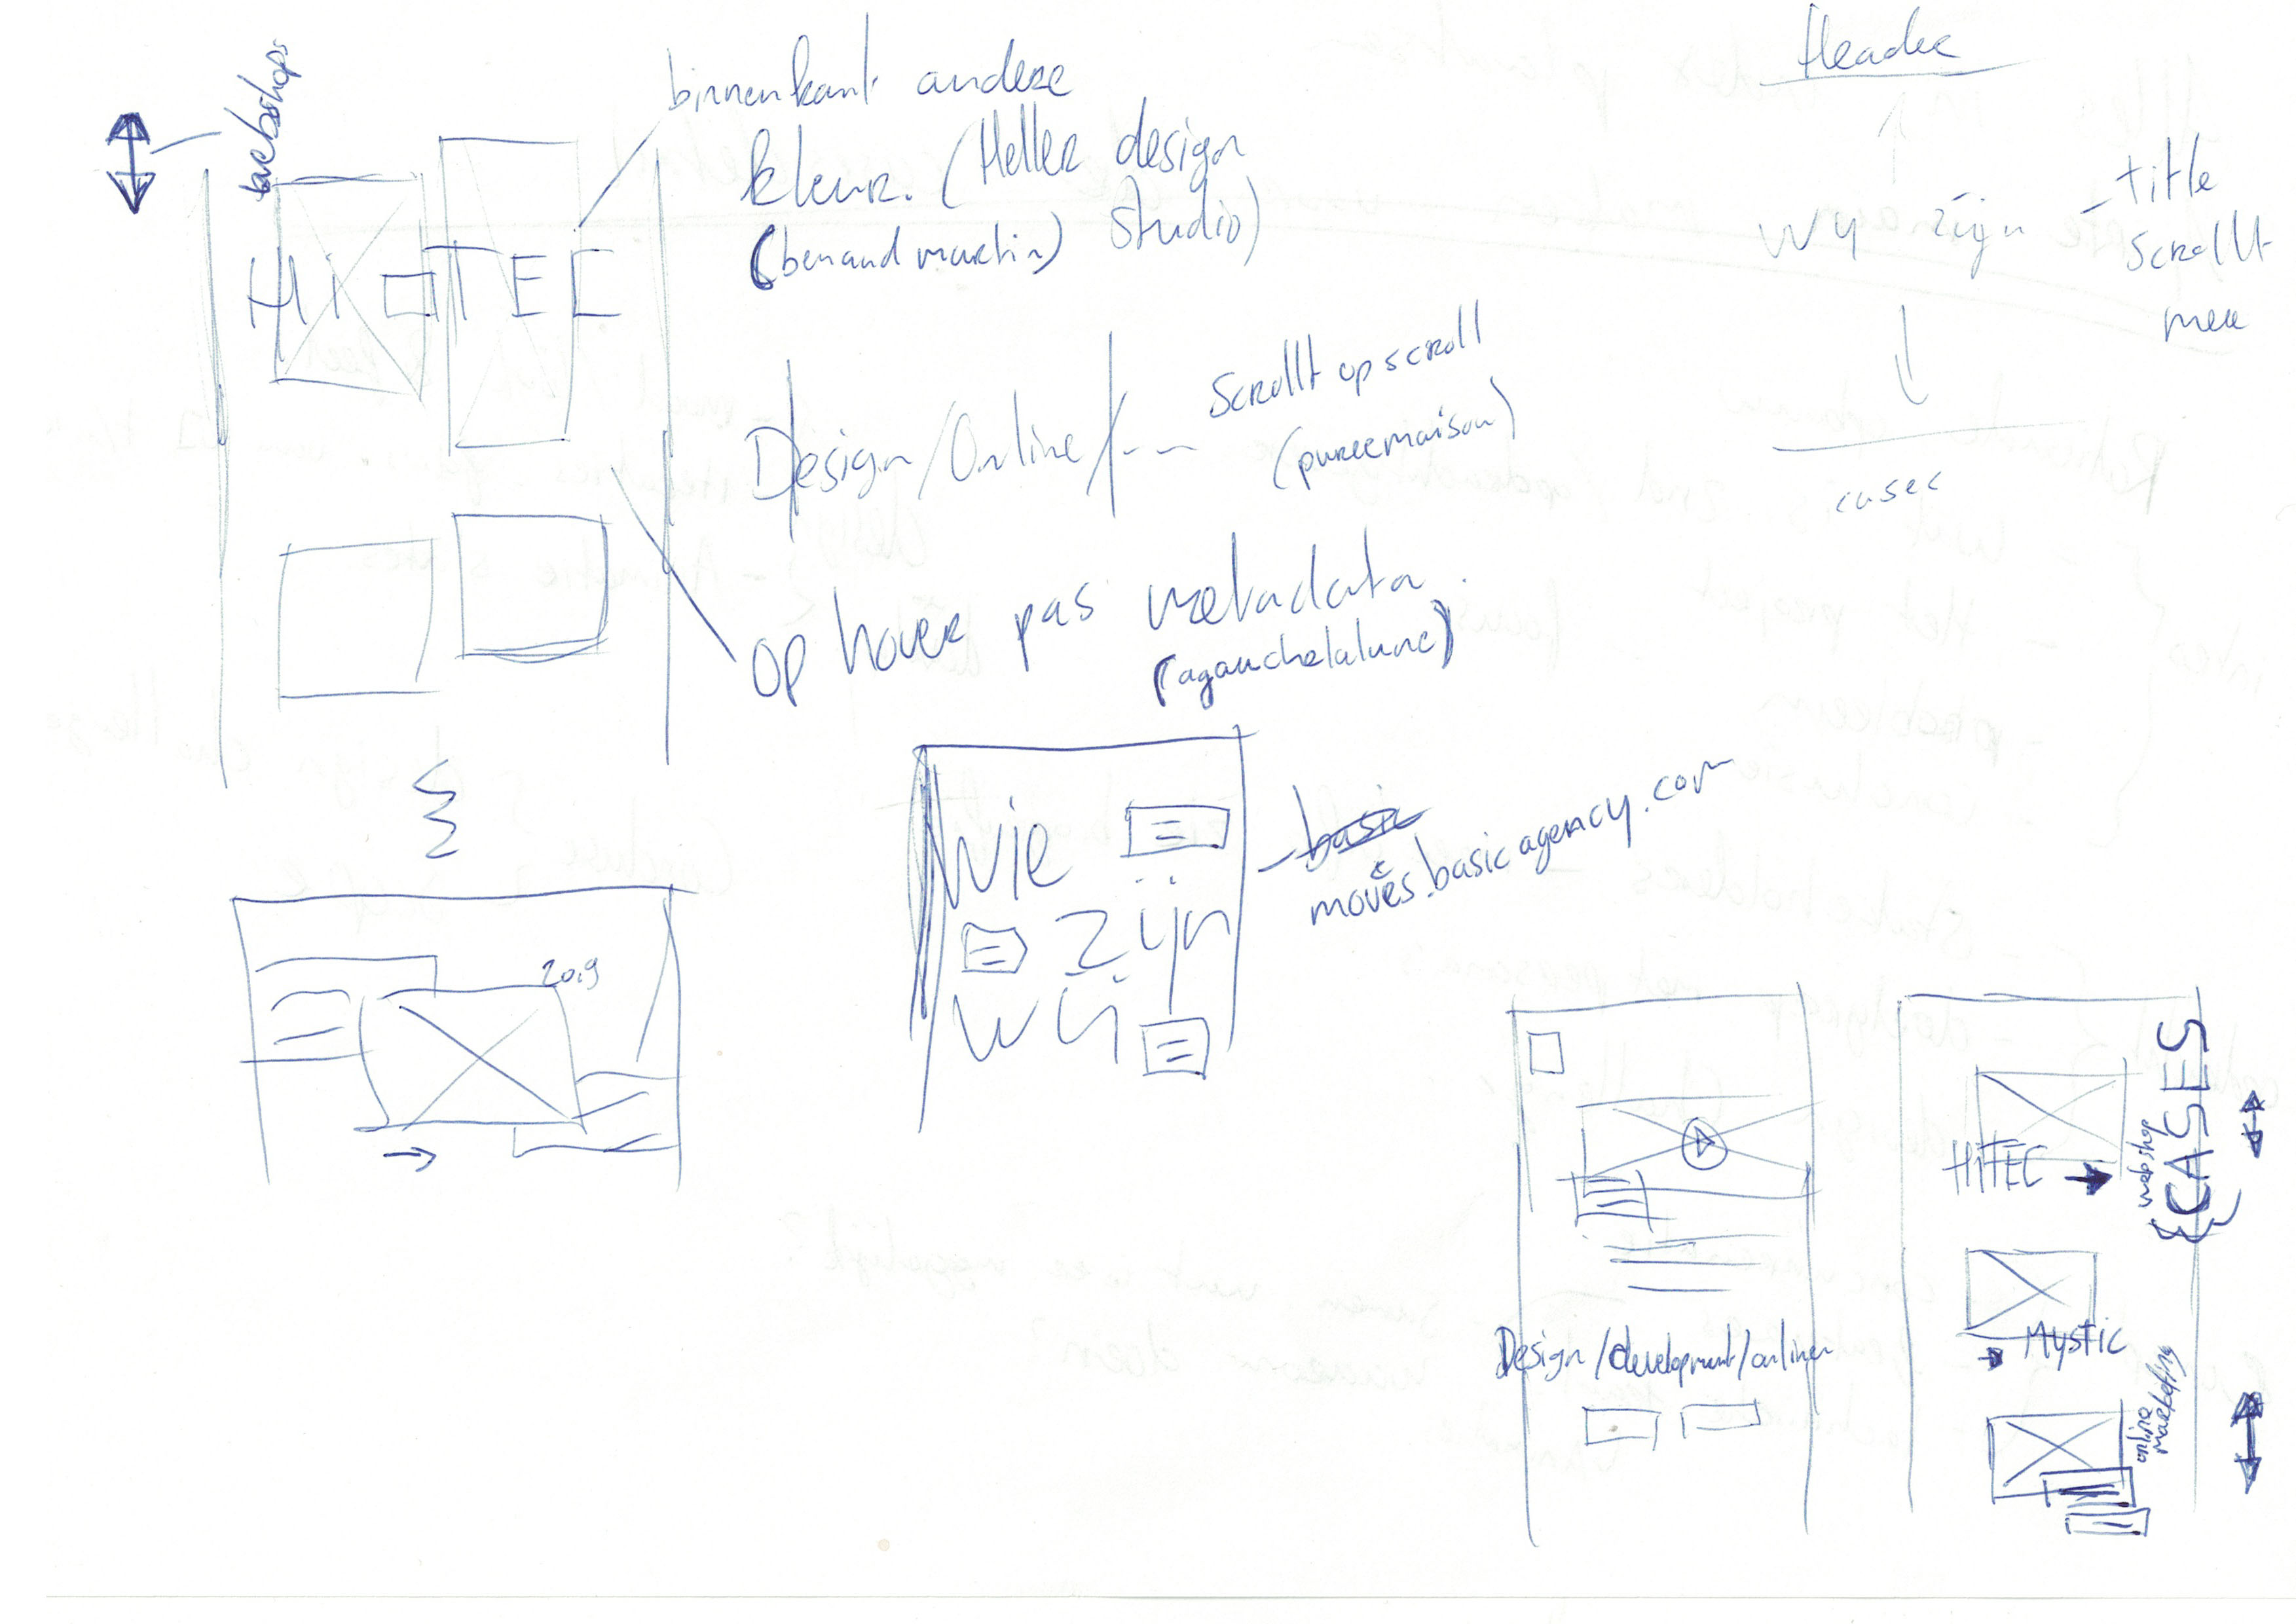 webshops
HI-TEC
binnenkant andere
kleur. (Heller design
(benandmartin) Studio)
Design/Online/---
Scrollt op scroll
(pureemaison)
op hover pas metadata.
(agauchelalune)
Header
wij zijn - title
scrollt
mee
cases
2019
wie
zijn
wij
basic
moves.basicagency.com
Design/development/online
HITEC
webshop
{CASES}
Mystic
online
marketing